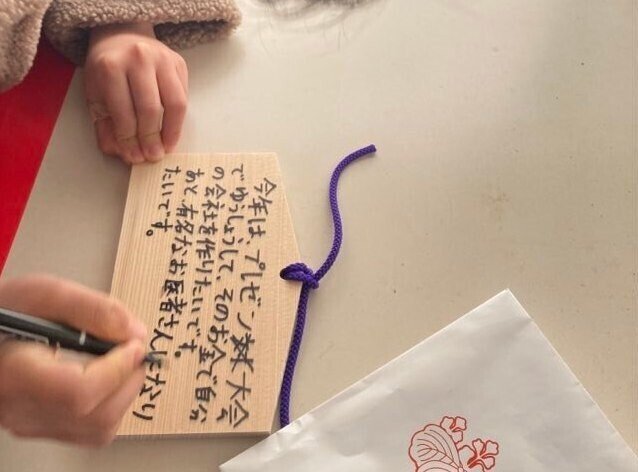 今年は、プレゼン大会
でゆっしょうして そのお金で自分
の会社を作りたいです。
あと有名なお医者さんになり
たいです。